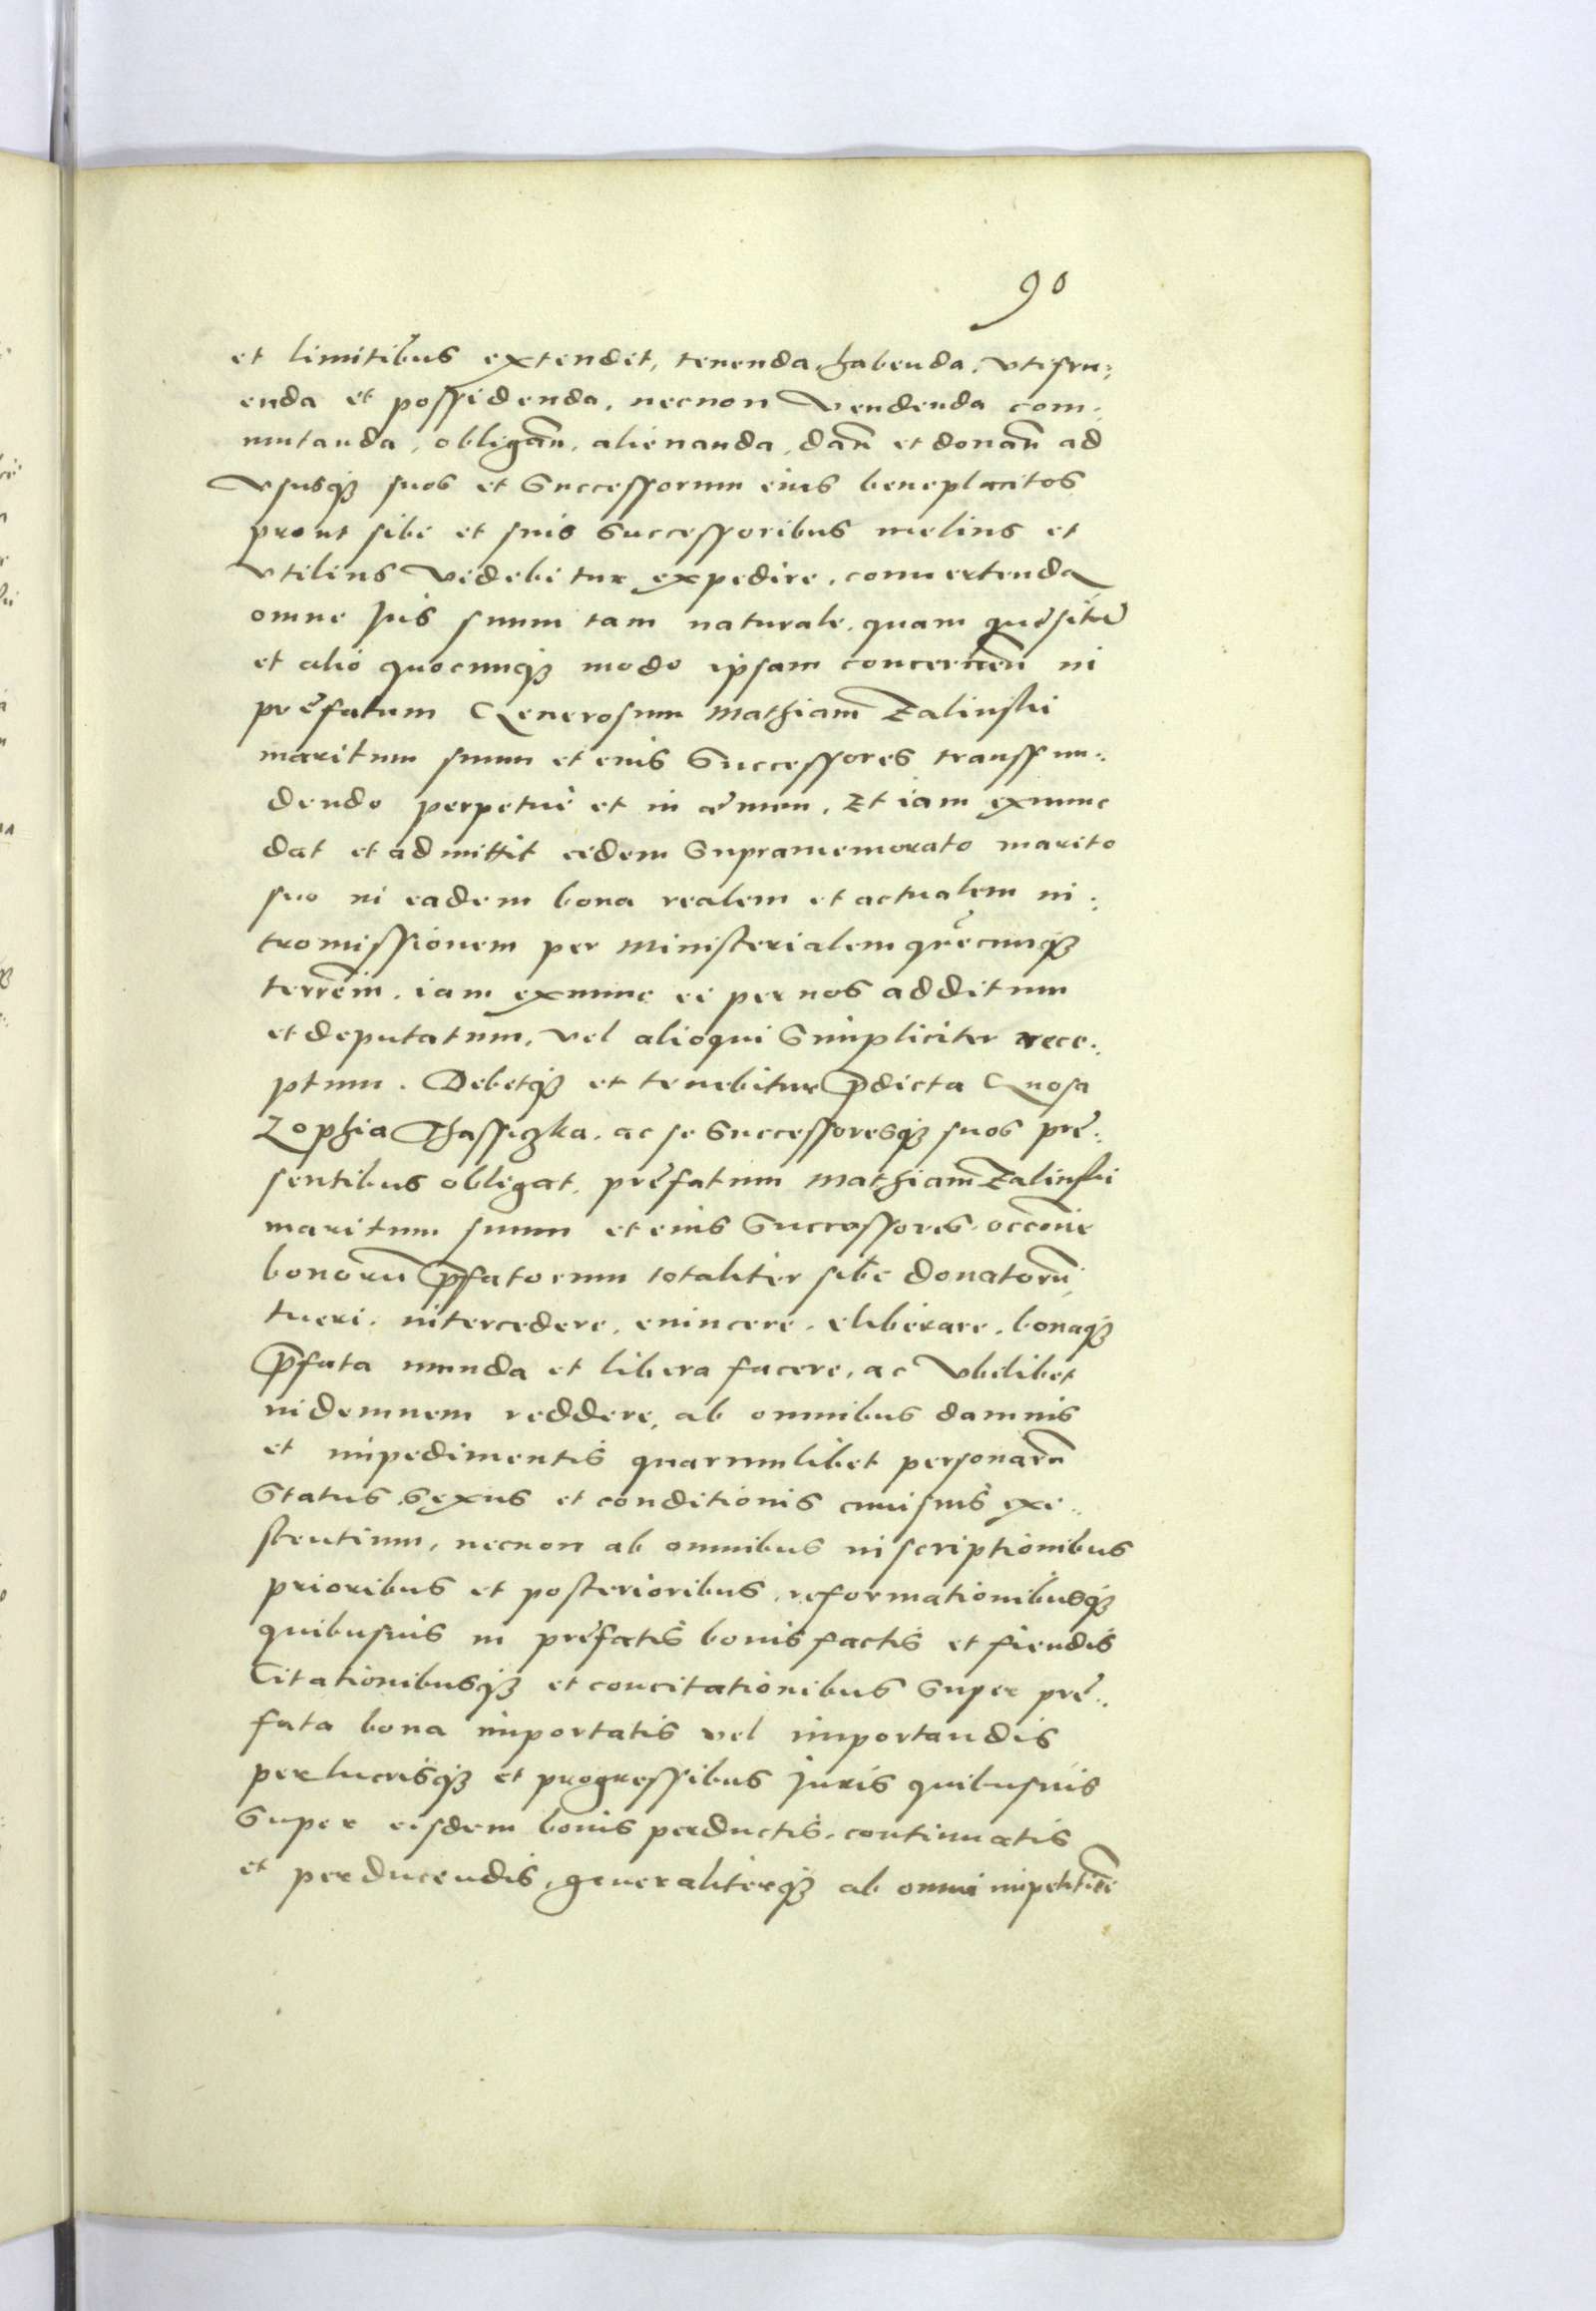 90
et limitibus extendit, tenenda, habenda, vtifru:
enda et possidenda, necnon vendenda com:
mutanda, obligan̄, alienanda, dan̄ et donan̄ ad
vsusq́ꝫ suos et Successorum eius beneplacitos
prout sibi et suis Successoribus melius et
vtilius videbitur expedire, conuertenda
omne Jus suum tam naturale, quam quęsitū
et alio quocunqꝫ modo ipsam concernen̄ in
pręfatum Generosum Mathiam Zalinski
maritum suum et eius Successores transfun:
dendo perpetuè et in æuum, Et iam exnunc
dat et admittit eidem Supramemorato marito
suo in eadem bona realem et actualem in:
tromissionem per Ministerialem quēcunqꝫ
terrēm, iam exnunc ei per nos additum
et deputatum, vel alioqui Simpliciter rece:
ptum. Debetqꝫ et tenebitur p̄dicta Gnosa
Zophia, ac se Successoresqꝫ suos prę:
sentibus obligat, pręfatum Mathiam Zalinski
maritum suum et eius Successores, occōne
bonorū p̄fatorum totaliter sibi donatorū,
tueri, intercedere, euincere, eliberare, bonaqꝫ
p̄fata munda et libera facere, ac vbilibet
indemnem reddere, ab omnibus damnis
et impedimentis quarumlibet personarū
Status, Sexus et conditionis cuiusuis exi:
stentium, necnon ab omnibus inscriptionibus
prioribus et posterioribus, reformationibusqꝫ
quibusuis in pręfatis bonis factis et fiendis
Citationibusqꝫ et concitationibus Super prę:
fata bona importatis vel importandis
perlucrisqꝫ et progressibus Juris quibusuis
Super eisdem bonis perductis, continuatis
et perducendis, generaliterqꝫ ab omni impetitiōe